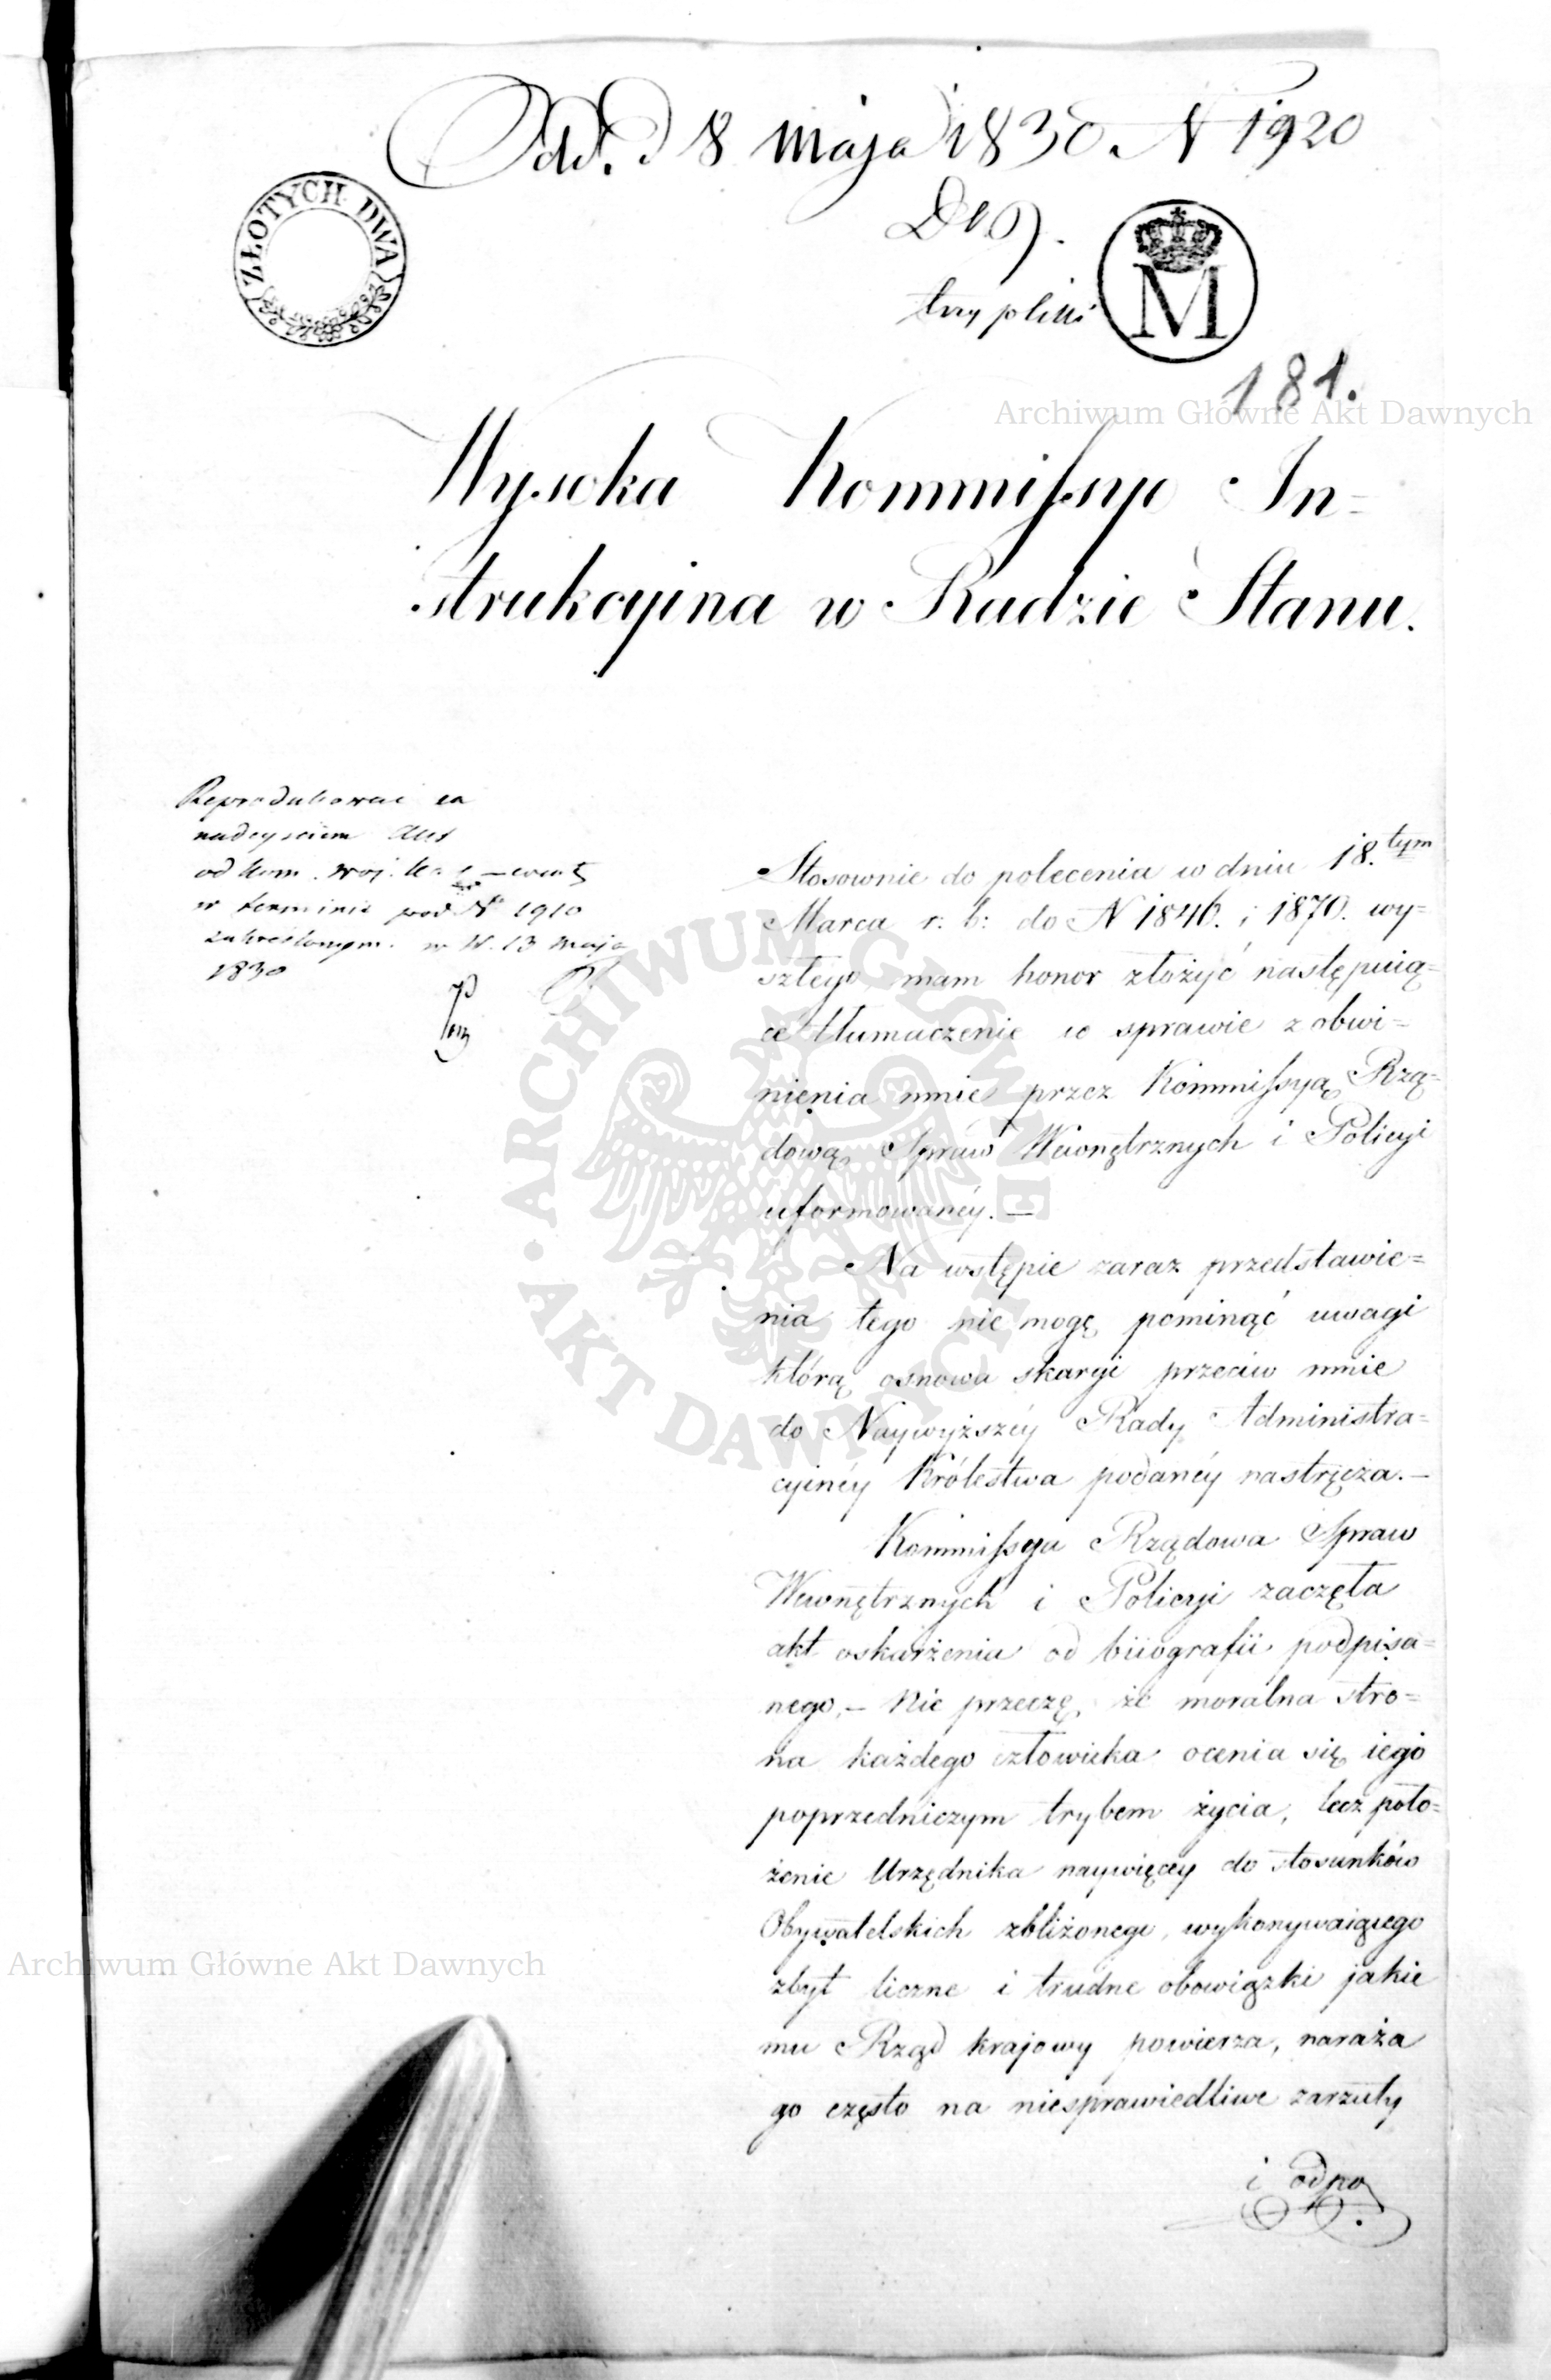 Odd. d 8 maja 1830. N 1920
trzy pliki
ZŁOTYCH DWA
M
181.
Archiwum Główne Akt Dawnych
Wysoka Kommissyo In=
strukcyina w Radzie Stanu.
Reprodukować za
nadeyściem Akt
od Kom. Woj.
w terminie pod N 1910
zakreślonym. w W. 13 Maja
1830
Stosownie do polecenia w dniu 18.tym
Marca r: b: do N 1846. i 1870. wy=
szłego mam honor złożyć następuią=
ce tłumaczenie w sprawie z obwi=
nienia mnie przez Kommissyą Rzą=
dową Spraw Wewnętrznych i Policyi
uformowanéy. —
Na wstępie zaraz przedstawie=
nia tego nie mogę pominąć uwagi
którą osnowa skargi przeciw mnie
do Naywyższéy Rady Administra=
cyinéy Królestwa podanéy nastręcza. —
Kommissya Rządowa Spraw
Wewnętrznych i Policyi zaczęła
akt oskarżenia od biiografii podpisa=
nego, — Nie przeczę, że moralna stro=
na każdego człowieka ocenia się iego
poprzedniczym trybem życia, lecz poło=
żenie Urzędnika naywięcey do stosunków
Obywatelskich zbliżonego, wykonywaiącego
zbyt liczne i trudne obowiązki jakie
mu Rząd krajowy powierza, naraża
go często na niesprawiedliwe zarzuty
i odpo
ARCHIWUM GŁÓWNE AKT DAWNYCH
Archiwum Główne Akt Dawnych